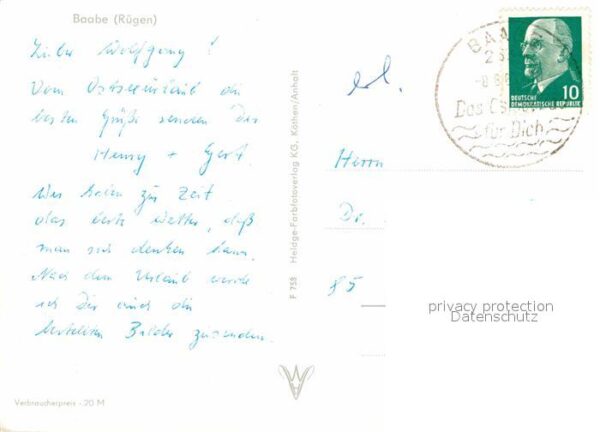 Baabe (Rügen)
Lieber Wolfgang!
Vom Ostseeurlaub die
besten Grüße senden Dir
Henry + Gert.
Wir haben zur Zeit
das beste Wetter, daß
man sich denken kann.
Nach dem Urlaub werde
ich Dir auch die
bestellten Bilder zusenden.
Verbraucherpreis -.20 M
F 758 Heldge-Farbfotoverlag KG, Köthen/Anhalt
erl.
BAA
Das
für Dich
DEUTSCHE
DEMOKRATISCHE REPUBLIK
10
Herrn
Dr.
85
privacy protection
Datenschutz